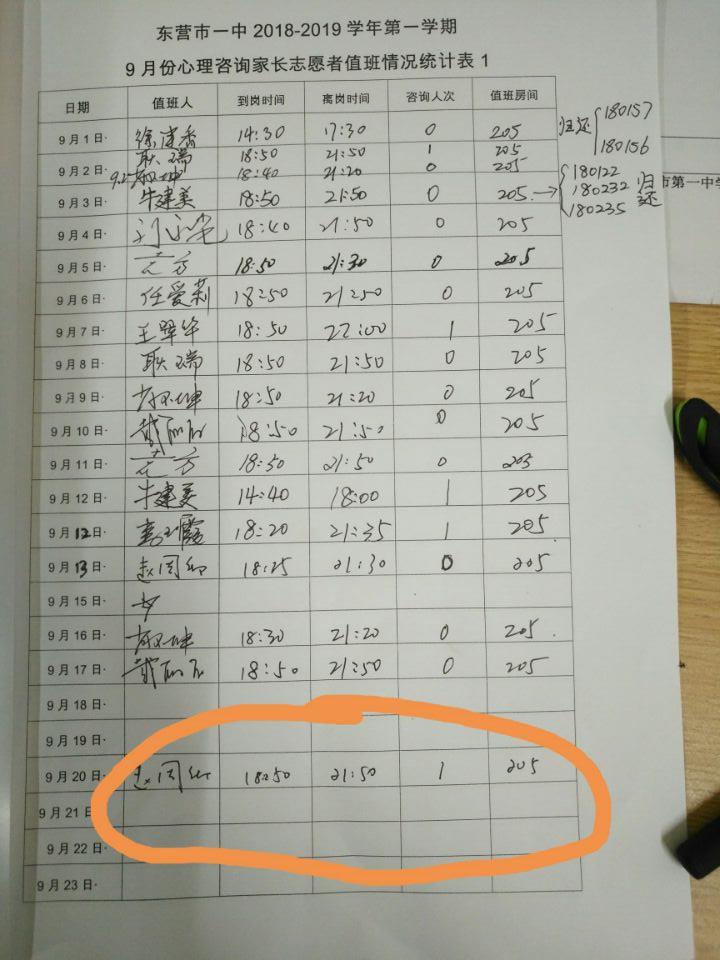 东营市一中 2018-2019 学年第一学期
9 月份心理咨询家长志愿者值班情况统计表 1
日期 值班人 到岗时间 离岗时间 咨询人次 值班房间
9 月 1 日 徐建香 14:30 17:30 0 205 归还 180157 180156
耿瑞 18:50 21:50 1 205
9 月 2 日 9.2 坤 18:40 21:20 0 205
9 月 3 日 牛建美 18:50 21:50 0 205 → 180122 180232 180235 归还
市第一中学
9 月 4 日 18:40 21:50 0 205
9 月 5 日 方 18:50 21:30 0 205
9 月 6 日 任爱莉 18:50 21:50 0 205
9 月 7 日 王翠华 18:50 22:00 1 205
9 月 8 日 耿瑞 18:50 21:50 0 205
9 月 9 日 坤 18:50 21:20 0 205
9 月 10 日 18:50 21:50 0 205
9 月 11 日 方 18:50 21:50 0 205
9 月 12 日 牛建美 14:40 18:00 1 205
9 月 12 日 霞 18:20 21:35 1 205
9 月 13 日 赵同 18:25 21:30 0 205
9 月 15 日
9 月 16 日 坤 18:30 21:20 0 205
9 月 17 日 18:50 21:50 0 205
9 月 18 日
9 月 19 日
9 月 20 日 赵同 18:50 21:50 1 205
9 月 21 日
9 月 22 日
9 月 23 日